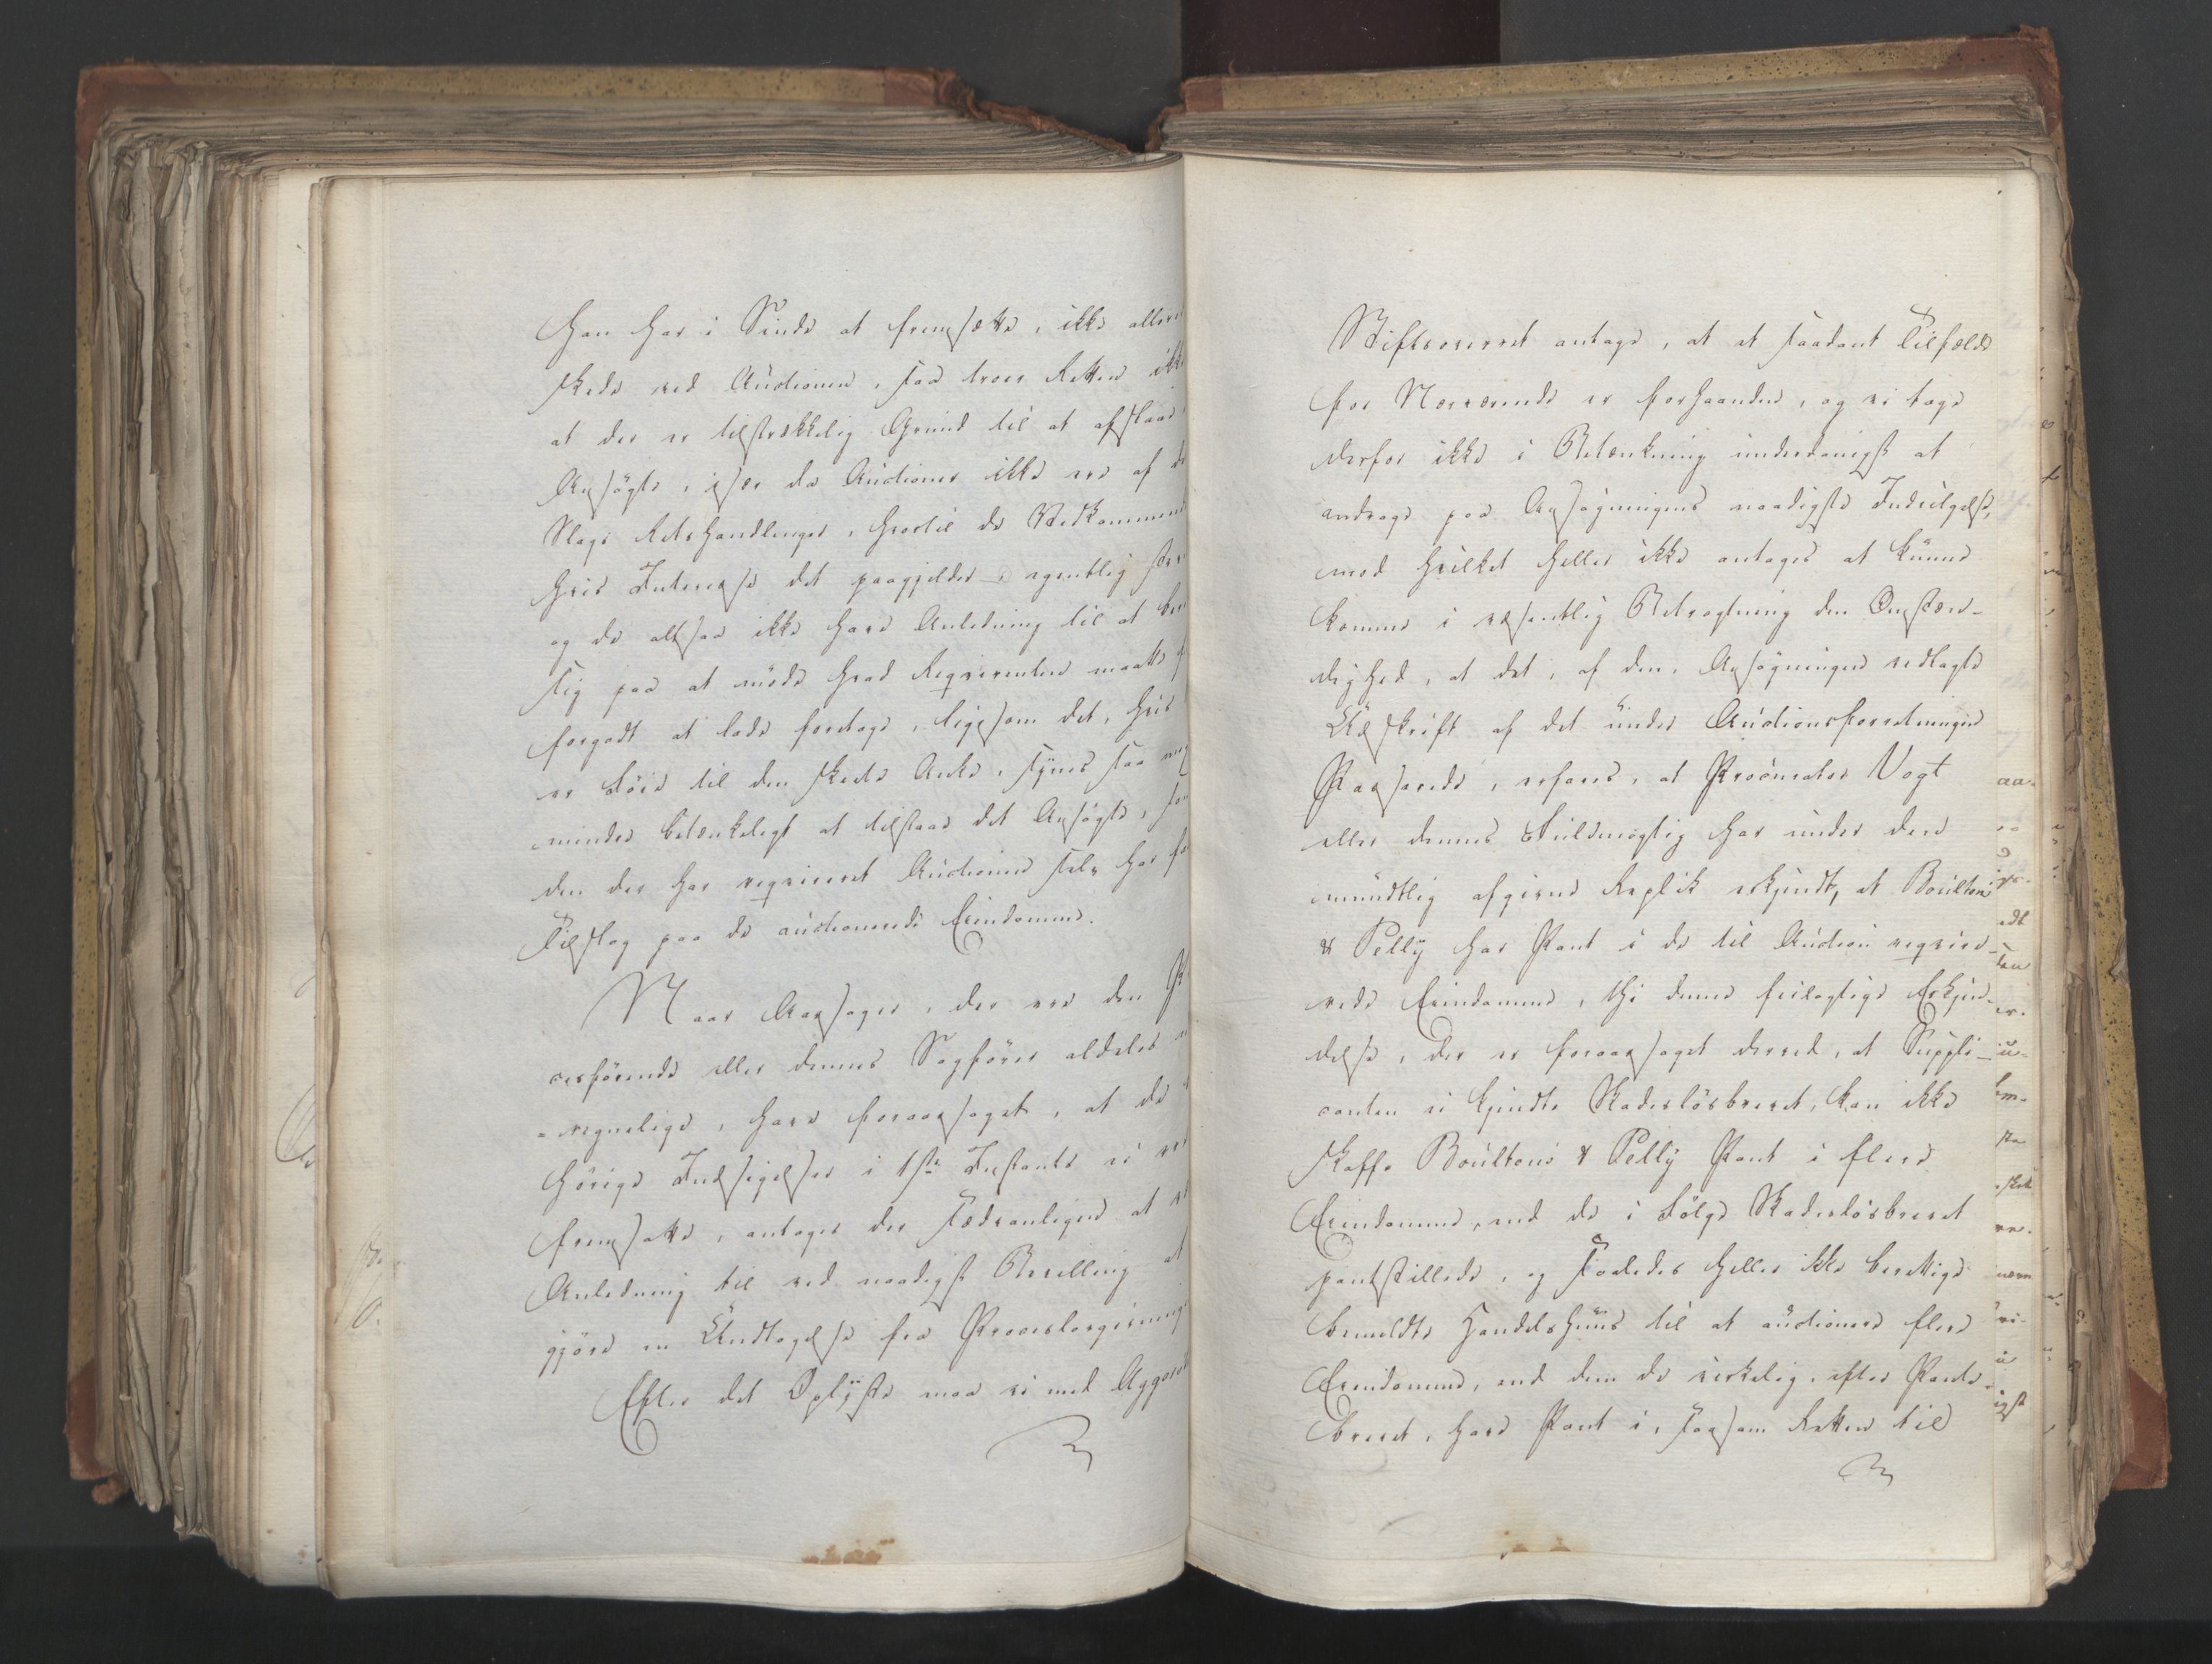 han har i Sinde at fremsætte, ikke allere
skede ved Auctionen, saa troer Retten ikke
at der er tilstrækkelig Grund til at afslaae
Ansøgte, især da Auctioner ikke ere af de
Slags Retshandlinger, hvortil de Vedkommend
hvis Interesse det paagjelder egentlig
og de altsaa ikke have Anledning til at be
sig paa at møde hvad Reqvirenten maatte f
forgodt at lade foretage, ligesom det, hvis
er føiet til den skeete Anke, synes saa meg
mindre betænkeligt at tilstaae det Ansøgte, som
den der har reqvireret Auctionen selv har
Tilslag paa de auctionerede Eiendomme.
Naar Aarsager, der ere den P
ocesførende eller dennes Sagfører aldeles
regnelige, have foraarsaget, at de
hørige Indsigelser i 1ste Instants ei
fremsatte, antages der sædvanligen at
Anledning til ved naadigst Bevilling at
gjøre en Undtagelse fra Proceslovgivning
Efter det Oplyste maa vi med Aggers
Stiftsoverret antage, at et saadant Tilfælde
for Nærværende er forhaanden, og vi tage
derfor ikke i Betænkning underdanigst at
andrage paa Ansøgningens naadigste Indvilgelse,
mod hvilket heller ikke antages at kunne
komme i væsentlig Betragtning den Omstæn-
dighed, at det, af den, Ansøgningen vedlagte
Udskrift af det under Auctionsforretningen
Passerede, erfares, at Procurator Vogt
eller dennes Fuldmægtig har under den
mundtlig afgivne Replik erkjendt, at Boultons
& Pelly har Pant i de til Auction reqvire-
rede Eiendomme, thi denne feilagtige Erkjen-
delse, der er foraarsaget derved, at Suppli-
canten ei kjendte Skadesløsbrevet, kan ikke
skaffe Boultons & Pelly Pant i flere
Eiendomme, end de i Følge Skadesløsbrevet
pantstillede, og saaledes heller ikke berettige
bemeldte Handelshuus til at auctionere flere
Eiendomme, end dem de virkelig, efter Pante-
brevet, have Pant i, saasom Retten til